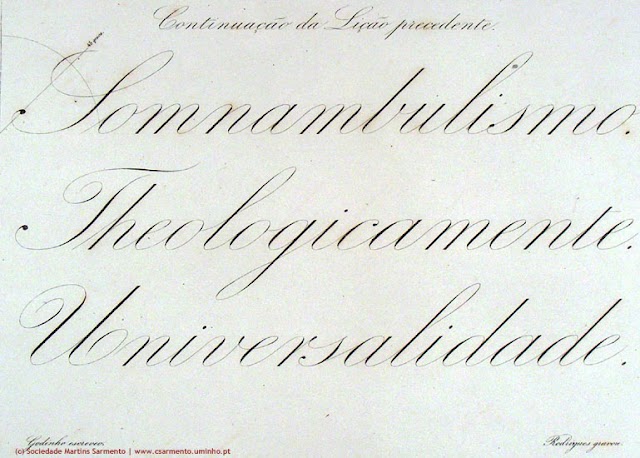 Continuação da Lição precedente.
Somnambulismo.
Theologicamente.
Universalidade.
Godinho escreveo. Rodrigues gravou.
(c) Sociedade Martins Sarmento | www.csarmento.uminho.pt